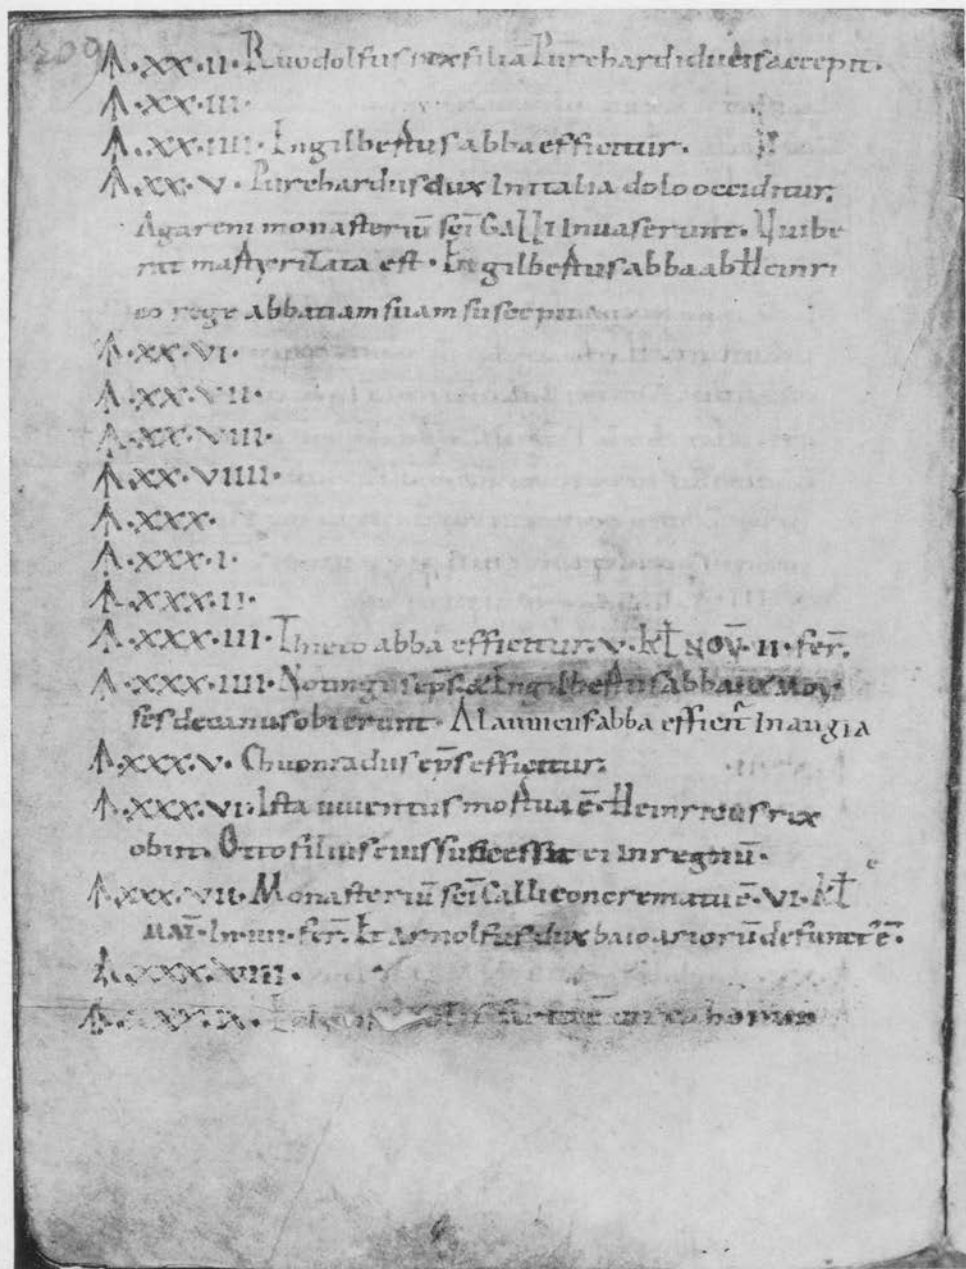 209
A·XX·II· Ruodolfus rex filia Purchardi ducis accepit.
A·XX·III·
A·XX·IIII· Ingilbertus abba efficitur.
A·XX·V· Purchardus dux In italia dolo occiditur.
Agareni monasteriū sc̄i GALLI Inuaserunt. Uuibe
rat martyrizata est. Ingilbertus abba ab Heinri
co rege abbatiam suam suscepit
A·XX·VI·
A·XX·VII·
A·XX·VIII·
A·XX·VIIII·
A·XXX·
A·XXX·I·
A·XXX·II·
A·XXX·III· Thieto abba efficitur. V. kł NOV̄. II. fer̄.
A·XXX·IIII· Notingus ep̄s. & Ingilbertus abba
ses decanus obierunt. Alauuicus abba efficit̄ In augia
A·XXX·V· Chuonradus ep̄s efficitur.
A·XXX·VI· Ista iuuentus mortua ē. Heinricus rex
obiit. Otto filius eius successit ei In regnū.
A·XXX·VII· Monasteriū sc̄i Galli concrematū ē. VI. kł
MAĪ. In. IIII. fer̄. Et Arnolfus dux baioariorū defunct' ē.
A·XXX·VIII·